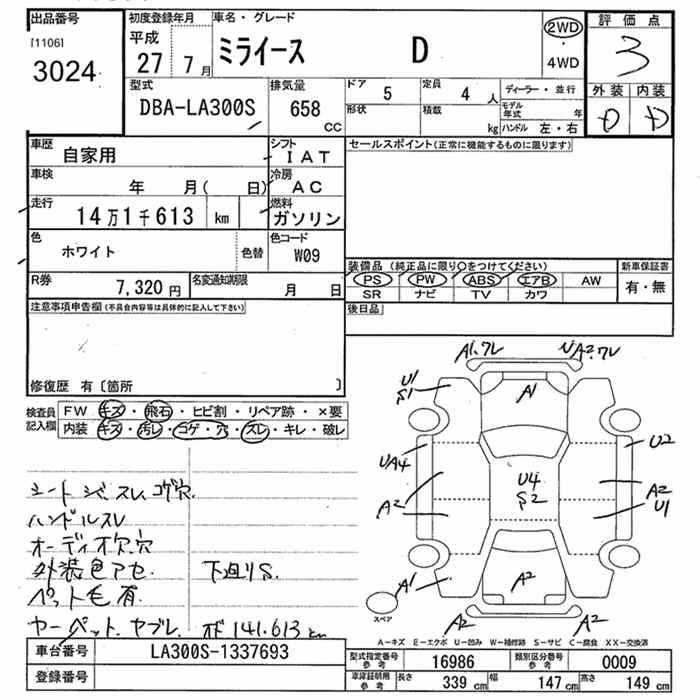 出品番号 初度登録年月 車名・グレード 評価点
[1106] 平成 ミライース D 2WD 3
3024 27 7月 ・4WD
型式 排気量 ドア 5 定員 4人 ディーラー・並行 外装 内装
DBA-LA300S 658 CC 形状 積載 kg モデル年式 年 D D
ハンドル 左・右
車歴 自家用 シフト IAT セールスポイント(正常に機能するものに限ります)
車検 年 月( 日) 冷房 AC
走行 14万1千613 km 燃料 ガソリン
色 ホワイト 色替 色コード W09
装備品 (純正品に限り○をつけてください) 新車保証書
R券 7,320円 名変通知期限 月 日 PS PW ABS エアB AW 有・無
SR ナビ TV カワ
注意事項申告欄(不具合内容等は具体的に記入して下さい) 後日品
修復歴 有〔箇所 〕
検査員記入欄 FW キズ・飛石・ヒビ割・リペア跡・×要
内装 キズ・汚レ・コゲ・穴・スレ・キレ・破レ
A1.ワレ A2.ワレ
U1 S1 A1
UA4 U2
U4 S2
A2 A2 U1
A1 A2
A2 A2
シート シミ スレ コゲ穴.
ハンドルスレ
オーディオ欠.穴
外装色アセ 下廻りS.
ペット毛有
カーペット.ヤブレ. ODO 141.613 km
スペア
A-キズ E-エクボ U-凹み W-補修跡 S-サビ C-腐食 XX-交換済
車台番号 LA300S-1337693 型式指定番号 参考 16986 類別区分番号 参考 0009
登録番号 車庫証明用 参考 長さ 339cm 幅 147cm 高さ 149cm